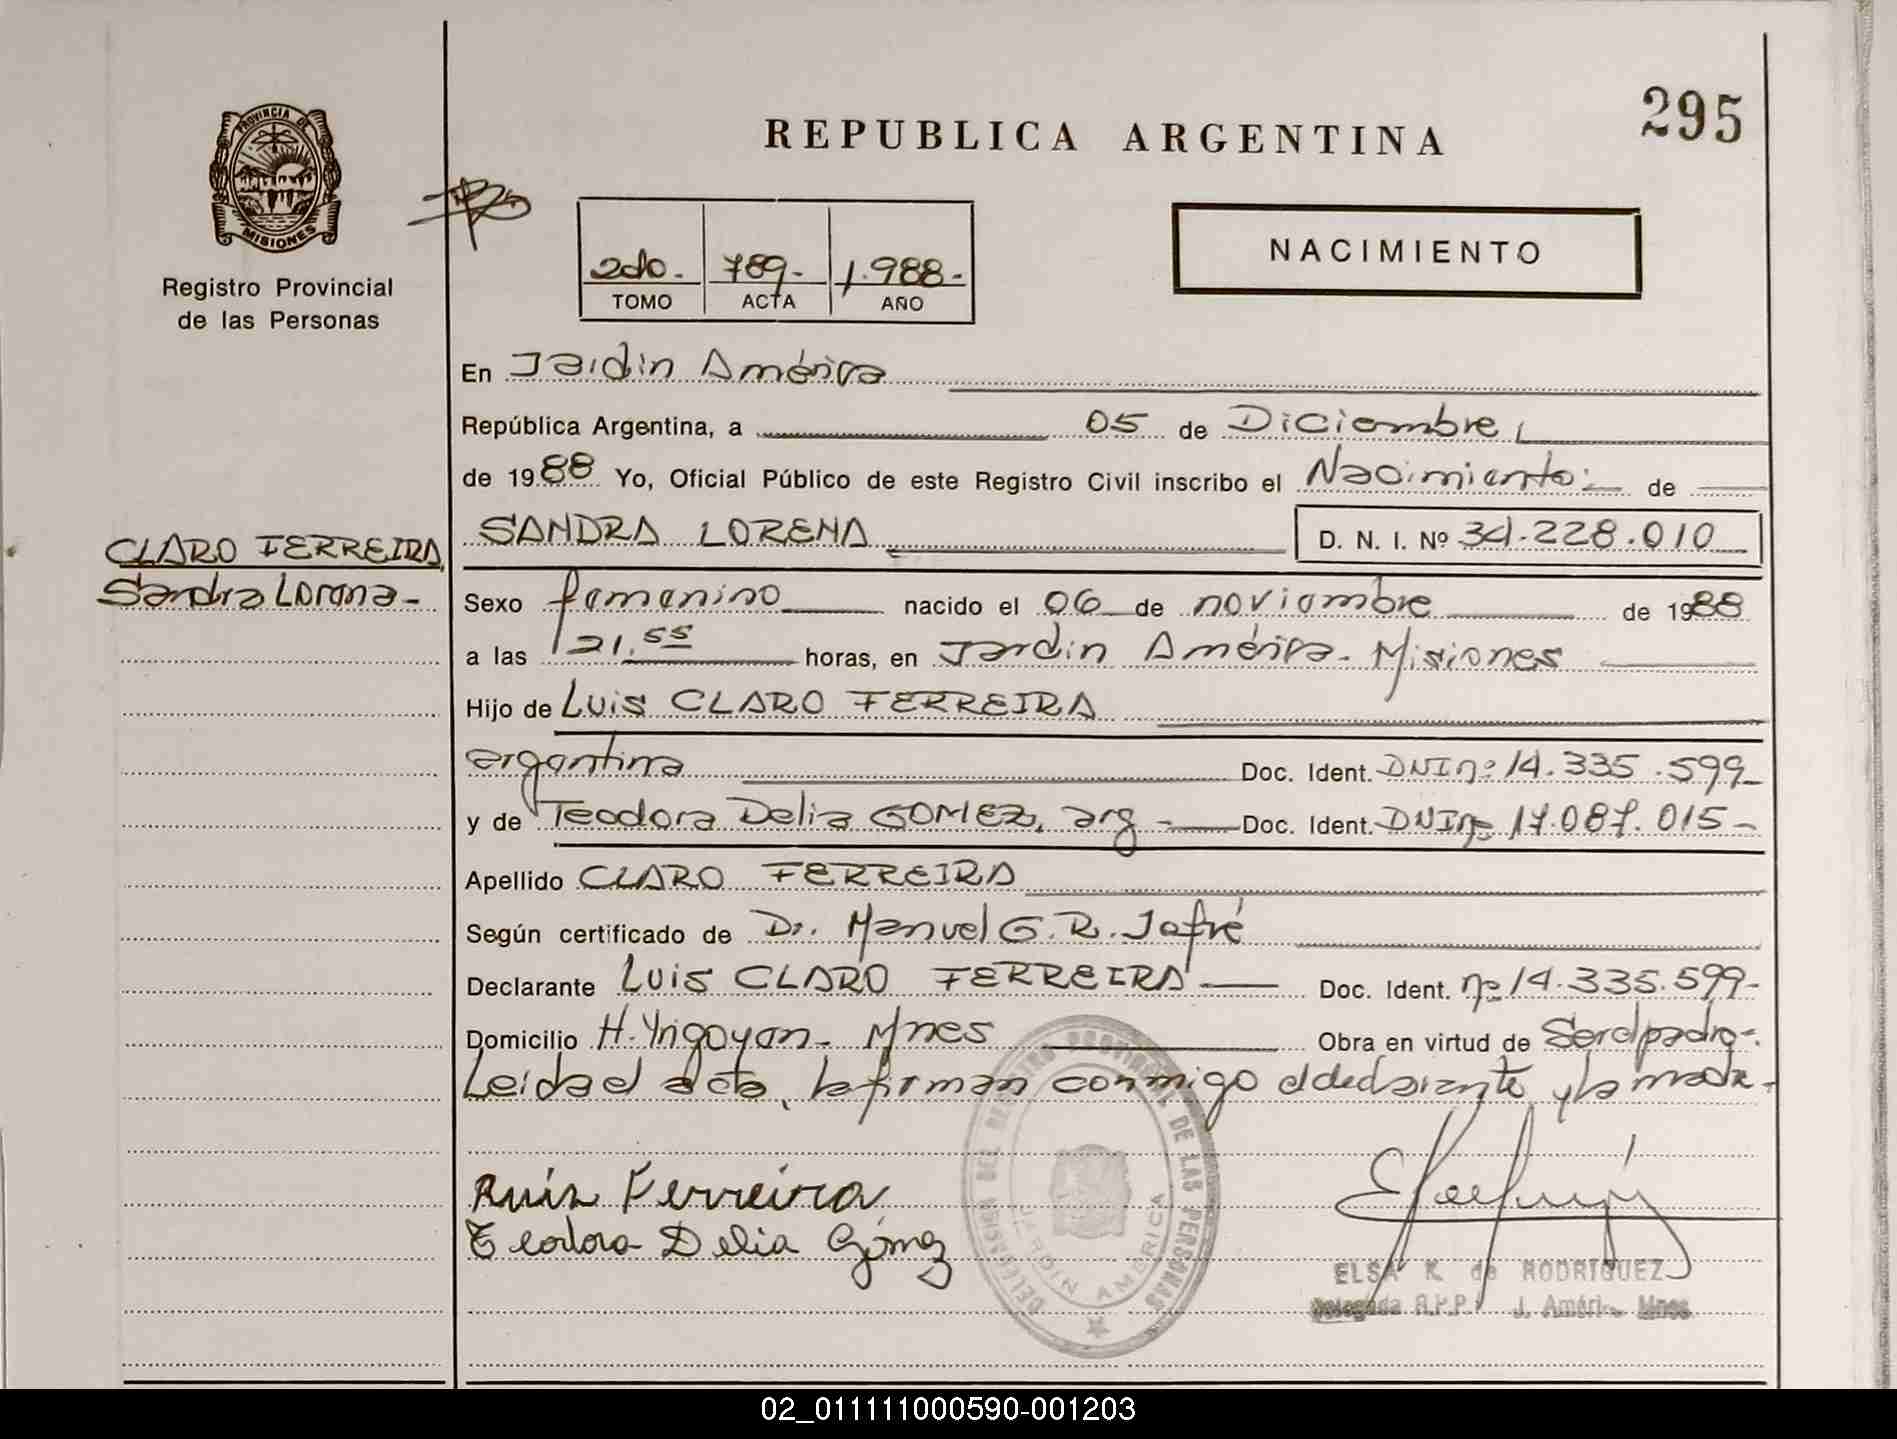 295
REPUBLICA ARGENTINA
PROVINCIA DE
MISIONES
Registro Provincial
de las Personas
2do.- 789- 1.988-
TOMO ACTA AÑO
NACIMIENTO
En Jardin América
República Argentina, a 05 de Diciembre,
de 1988 Yo, Oficial Público de este Registro Civil inscribo el Nacimiento:- de
CLARO FERREIRA,
Sandra Lorena-
SANDRA LORENA D. N. I. Nº 34.228.010
Sexo femenino nacido el 06 de noviembre de 1988
a las 21.55 horas, en Jardin América- Misiones
Hijo de Luis CLARO FERREIRA
argentina Doc. Ident. DNI nº 14.335.599-
y de Teodora Delia GOMEZ, arg - Doc. Ident. DNI nº 17.087.015-
Apellido CLARO FERREIRA
Según certificado de Dr. Manuel G. R. Jofré
Declarante Luis CLARO FERREIRA Doc. Ident. nº 14.335.599-
Domicilio H. Yrigoyen- Mnes Obra en virtud de Ser el padre-.
Leida el acta, la firman conmigo el declarante y la madre-
Ferreira
Teodora Delia Gómez
DELEGACION DEL REGISTRO PROVINCIAL DE LAS PERSONAS
JARDIN AMERICA
ELSA K. de RODRIGUEZ
Delegada R.P.P. J. Améri Mnes.
02_011111000590-001203